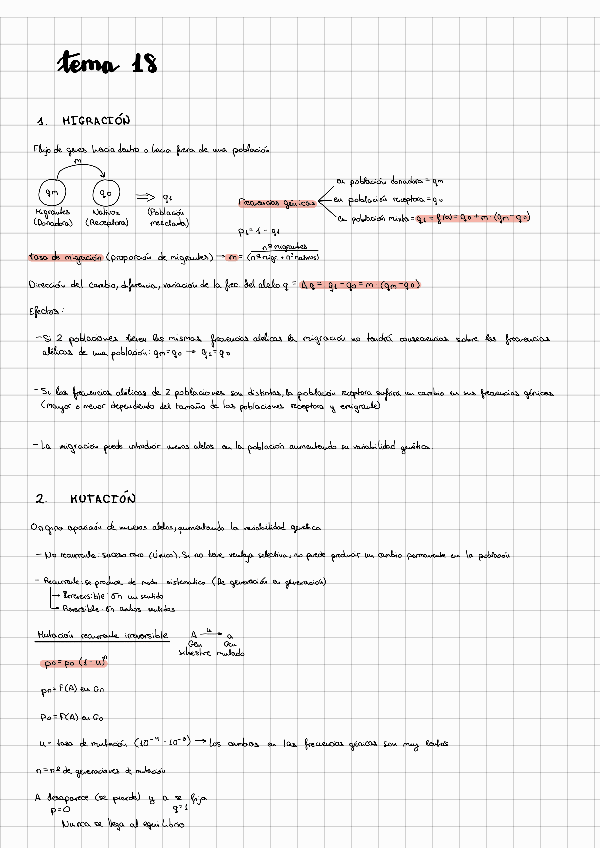 tema 18
1. MIGRACIÓN
Flujo de genes hacia dentro o hacia fuera de una población
m
qm
q0
⇒ q1
Migrantes (Donadora)
Nativos (Receptora)
(Población mezclada)
Frecuencias génicas
en población donadora = qm
en población receptora = q0
en población mixta = q1 = f(a) = q0 + m · (qm - q0)
p1 = 1 - q1
tasa de migración (proporción de migrantes) → m = nº migrantes / (nº migr. + nº nativos)
Dirección del cambio, diferencia, variación de la frec. del alelo q = Δq = q1 - q0 = m (qm - q0)
Efectos:
- Si 2 poblaciones tienen las mismas frecuencias alélicas la migración no tendrá consecuencias sobre las frecuencias
alélicas de una población: qm = q0 → q1 = q0
- Si las frecuencias alélicas de 2 poblaciones son distintas, la población receptora sufrirá un cambio en sus frecuencias génicas
(mayor o menor dependiendo del tamaño de las poblaciones receptora y emigrante)
- La migración puede introducir nuevos alelos en la población aumentando su variabilidad genética.
2. MUTACIÓN
Origina aparición de nuevos alelos, aumentando la variabilidad genética
- No recurrente: suceso raro (único). Si no tiene ventaja selectiva, no puede producir un cambio permanente en la población
- Recurrente: se produce de modo sistemático (De generación en generación)
→ Irreversible: en un sentido
→ Reversible: en ambos sentidos
Mutación recurrente irreversible
A u→ a
Gen silvestre
Gen mutado
pn = p0 (1 - u)^n
pn = F(A) en Gn
P0 = F(A) en G0
u = tasa de mutación → los cambios en las frecuencias génicas son muy lentos
n = nº de generaciones de mutación
A desaparece (se pierde) y a se fija
p=0 q=1
Nunca se llega al equilibrio